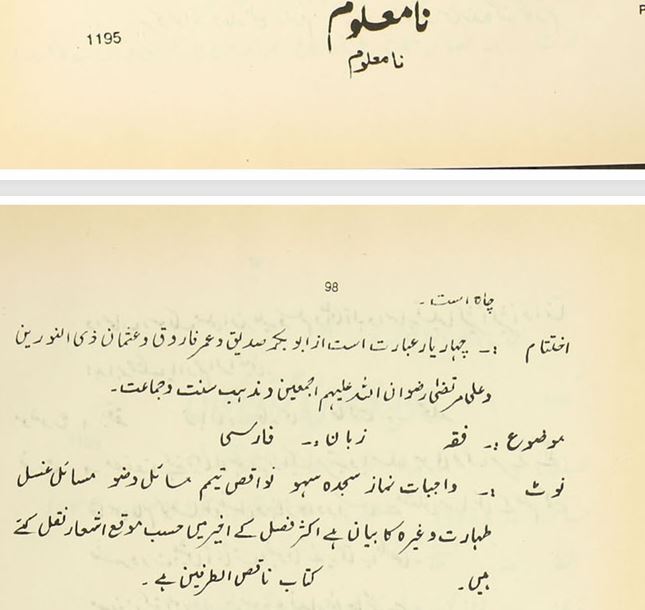 نامعلوم
1195
نامعلوم
98
چاہ است۔
اختتام :۔ چہار یار عبارت است از ابو بکر صدیق و عمر فاروق و عثمان ذی النورین
و علی مرتضیٰ رضوان اللہ علیہم اجمعین و مذہب سنت و جماعت۔
موضوع :۔ فقہ زبان :۔ فارسی
نوٹ :۔ واجبات نماز سجدہ سہو نواقص تیمم مسائل وضو مسائل غسل
طہارت وغیرہ کا بیان ہے اکثر فصل کے اخیر میں حسب موقع اشعار نقل کئے
ہیں۔ کتاب ناقص الطرفین ہے۔